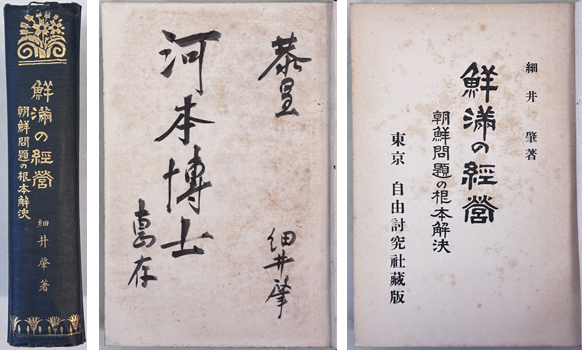 鮮満の經營
朝鮮問題の根本解決
細井肇著
恭呈
河本博士
惠存
細井肇
細井肇著
鮮満の經營
朝鮮問題の根本解決
東京 自由討究社藏版